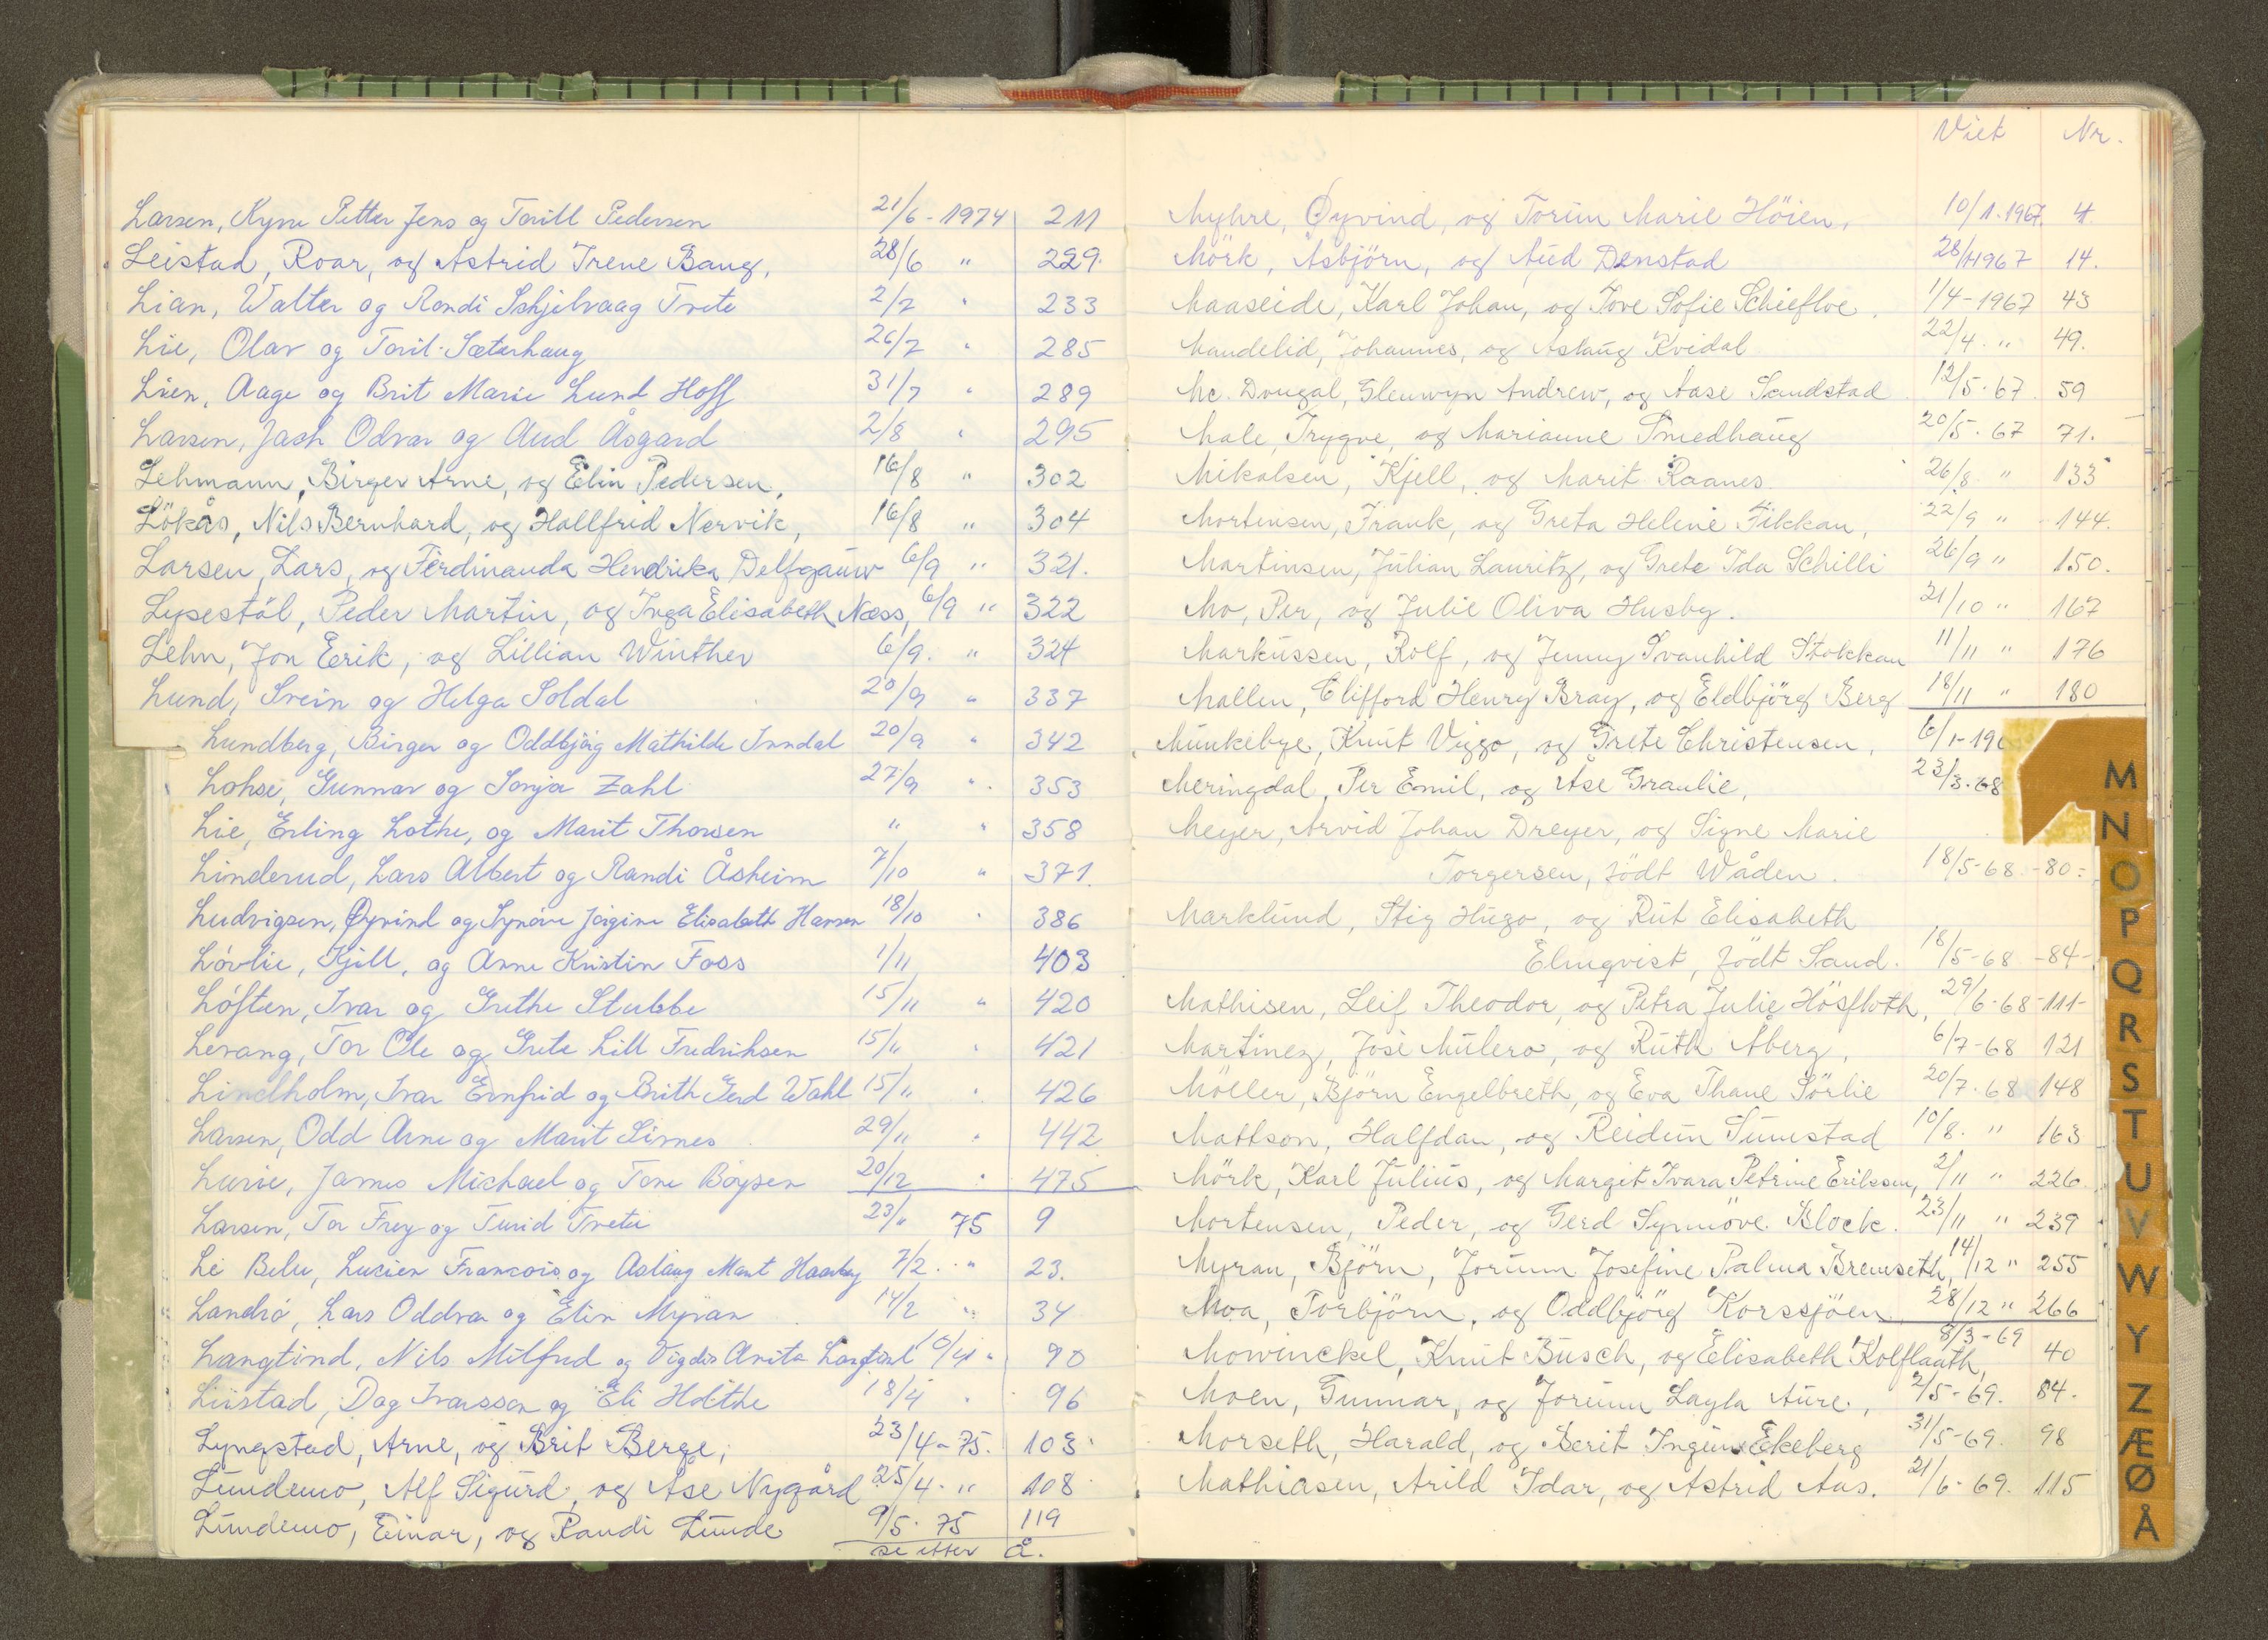 Larsen, Kyrre Petter Jens og Torill Pedersen 21/6-1974 211
Leistad, Roar, og Astrid Irene Bang, 28/6 " 229.
Lian, Walter og Randi Skjelvaag Tvete 2/7 " 233
Lie, Olav og Toril Sæterhaug 26/7 " 285
Lien, Aage og Brit Marie Lund Hoff 31/7 " 289
Larsen, Jack Odvar og Aud Åsgard 2/8 " 295
Lehmann, Birger Arne, og Elin Pedersen, 16/8 " 302
Lökås, Nils Bernhard, og Hallfrid Nervik, 16/8 " 304
Larsen, Lars, og Ferdinanda Hendrika Delfgauw 6/9 " 321.
Lysestöl, Peder Martin, og Inga Elisabeth Næss, 6/9 " 322
Lehn, Jon Erik, og Lillian Winther 6/9. " 324
Lund, Svein og Helga Soldal 20/9 " 337
Lundberg, Birger og Oddbjørg Mathilde Inndal 20/9 " 342
Lohse, Gunnar og Sonja Zahl 27/9 " 353
Lie, Erling Lothe, og Marit Thorsen " " 358
Linderud, Lars Albert og Randi Åsheim 7/10 " 371.
Ludvigsen, Øyvind og Synøve Jørgine Elisabeth Hansen 18/10 " 386
Løvlie, Kjell, og Anne Kristin Foss 1/11 403
Løften, Ivar og Grethe Stubbe 15/11 " 420
Levang, Tor Ole og Grete Lill Fredriksen 15/" " 421
Lindholm, Ivar Ernfrid og Brith Gerd Wahl 15/" " 426
Larsen, Odd Arne og Marit Sirnes 29/" " 442
Lurie, James Michael og Tone Boysen 20/12 " 475
Larsen, Tor Frey og Turid Tvete 23/" 75 9
Le Belu, Lucien Francois og Aslaug Marit 7/2. " 23.
Landrø, Lars Oddvar og Elin Myran 14/2 " 34
Langtind, Nils Milfrid og Vigdis Anita Langtind 10/4 " 90
Liistad, Dag Ivarsson og Eli Holthe 18/4 " 96
Lyngstad, Arne, og Brit Berge, 23/4-75. 103
Lundemo, Alf Sigurd, og Åse Nygård 25/4. " 108
Lundemo, Einar, og Randi Lunde 9/5. 75 119
se etter Å.
Viet Nr.
Myhre, Øyvind, og Torun Marie Höien, 10/1.1967. 4.
Mörk, Asbjörn, og Aud Denstad 28/1-1967 14.
Maaseide, Karl Johan, og Tove Sofie Schiefloe. 1/4-1967 43
Mandelid, Johannes, og Aslaug Kvidal 22/4. " 49.
Mc. Dougal, Glenwyn Andrew, og Aase Sandstad 12/5.67. 59
Male, Trygve, og Marianne Smedhaug 20/5.67 71.
Mikalsen, Kjell, og Marit Raanes. 26/8. " 133
Mortensen, Frank, og Greta Helene Fikkan, 22/9 " 144.
Martinsen, Julian Lauritz, og Grete Ida Schilli 26/9 " 150.
Mo, Per, og Julie Oliva Husby. 21/10 " 167
Markussen, Rolf, og Jenny Svanhild Stokkan 11/11 " 176
Mallen, Clifford Henry Bray, og Eldbjörg Berg 18/11 " 180
Munkebye, Knut Viggo, og Grete Christensen, 6/1-19
Meringdal, Per Emil, og Åse Graulie, 23/3-68
Meyer, Arvid Johan Dreyer, og Signe Marie
Torgersen, födt Wåden. 18/5-68 -80-
Marklund, Stig Hugo, og Rut Elisabeth
Elmqvist, födt Sand. 18/5-68 -84-
Mathisen, Leif Theodor, og Petra Julie Hösfloth, 29/6-68 -111-
Martinez, José Mulero, og Ruth Åberg, 6/7-68 121
Möller, Björn Engelbreth, og Eva Thane Sörlie 20/7.68 148
Mattson, Halfdan, og Reidun Sunstad 10/8. " 163
Mörk, Karl Julius, og Margit Ivara Petrine Eriksen, 2/11 " 226
Mortensen, Peder, og Gerd Synnöve Block. 23/11 " 239
Myran, Björn, Jorunn Josefine Palma Bremseth, 14/12 " 255
Moa, Torbjörn, og Oddbjörg Korssjöen 28/12 " 266
Mowinckel, Knut Busch, og Elisabeth Kolflaath, 8/3-69 40
Moen, Gunnar, og Jorunn Layla Aure, 2/5-69. 84.
Morseth, Harald, og Berit Ingunn Ekeberg 31/5-69. 98
Mathiasen, Arild Idar, og Astrid Aas. 21/6-69. 115
M
N
O
P
Q
R
S
T
U
V
W
Y
Z
Æ
Ø
Å